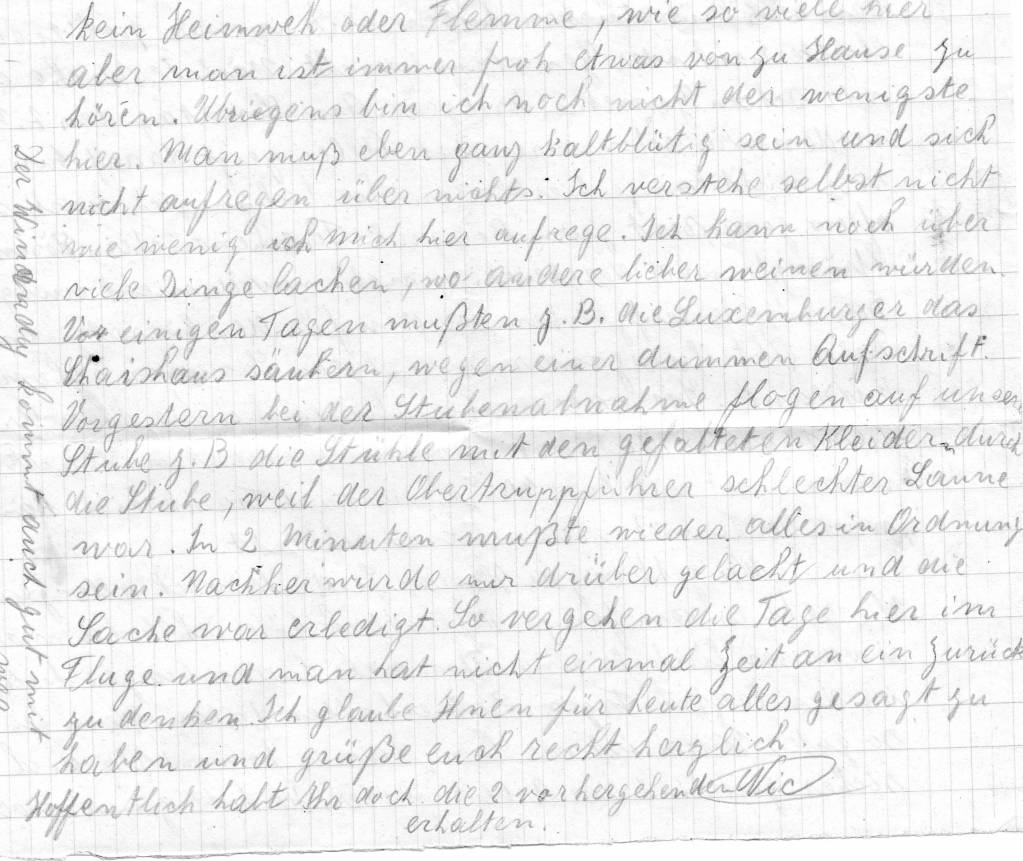 kein Heimweh oder Flemme, wie so viele hier
aber man ist immer froh etwas von zu Hause zu
hören. Übriegens bin ich noch nicht der wenigste
hier. Man muß eben ganz kaltblütig sein und sich
nicht aufregen über nichts. Ich verstehe selbst nicht
wie wenig ich mich hier aufrege. Ich kann noch über
viele Dinge lachen, wo andere lieber weinen würden.
Vor einigen Tagen mußten z.B. die Luxemburger das
Schaishaus säubern, wegen einer dummen Aufschrift.
Vorgestern bei der Stubenabnahme flogen auf unsere
Stube z.B die Stühle mit den gefalteten Kleidern durch
die Stube, weil der Obertruppführer schlechter Laune
war. In 2 Minuten mußte wieder alles in Ordnung
sein. Nachher wurde nur drüber gelacht und die
Sache war erledigt. So vergehen die Tage hier im
Fluge und man hat nicht einmal Zeit an ein Zurück
zu denken. Ich glaube Ihnen für heute alles gesagt zu
haben und grüße euch recht herzlich.
Hoffentlich habt Ihr doch die 2 vorhergehenden Nic
erhalten.
Der kommt auch gut mit